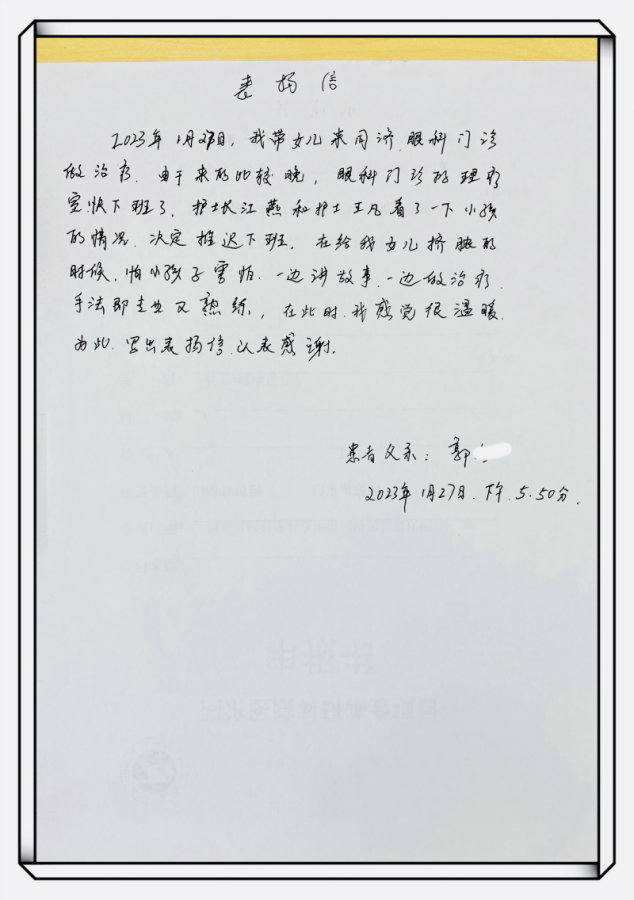 表扬信
2023年1月27日，我带女儿来同济眼科门诊
做治疗．由于来的比较晚，眼科门诊的理疗
室快下班了．护士长江燕和护士王凡看了一下小孩
的情况．决定推迟下班．在给我女儿挤脓的
时候．怕小孩子害怕．一边讲故事．一边做治疗．
手法即专业又熟练，在此时．我感觉很温暖．
为此．写出表扬信．以表感谢．
患者父亲：郭
2023年1月27日．下午．5.50分．